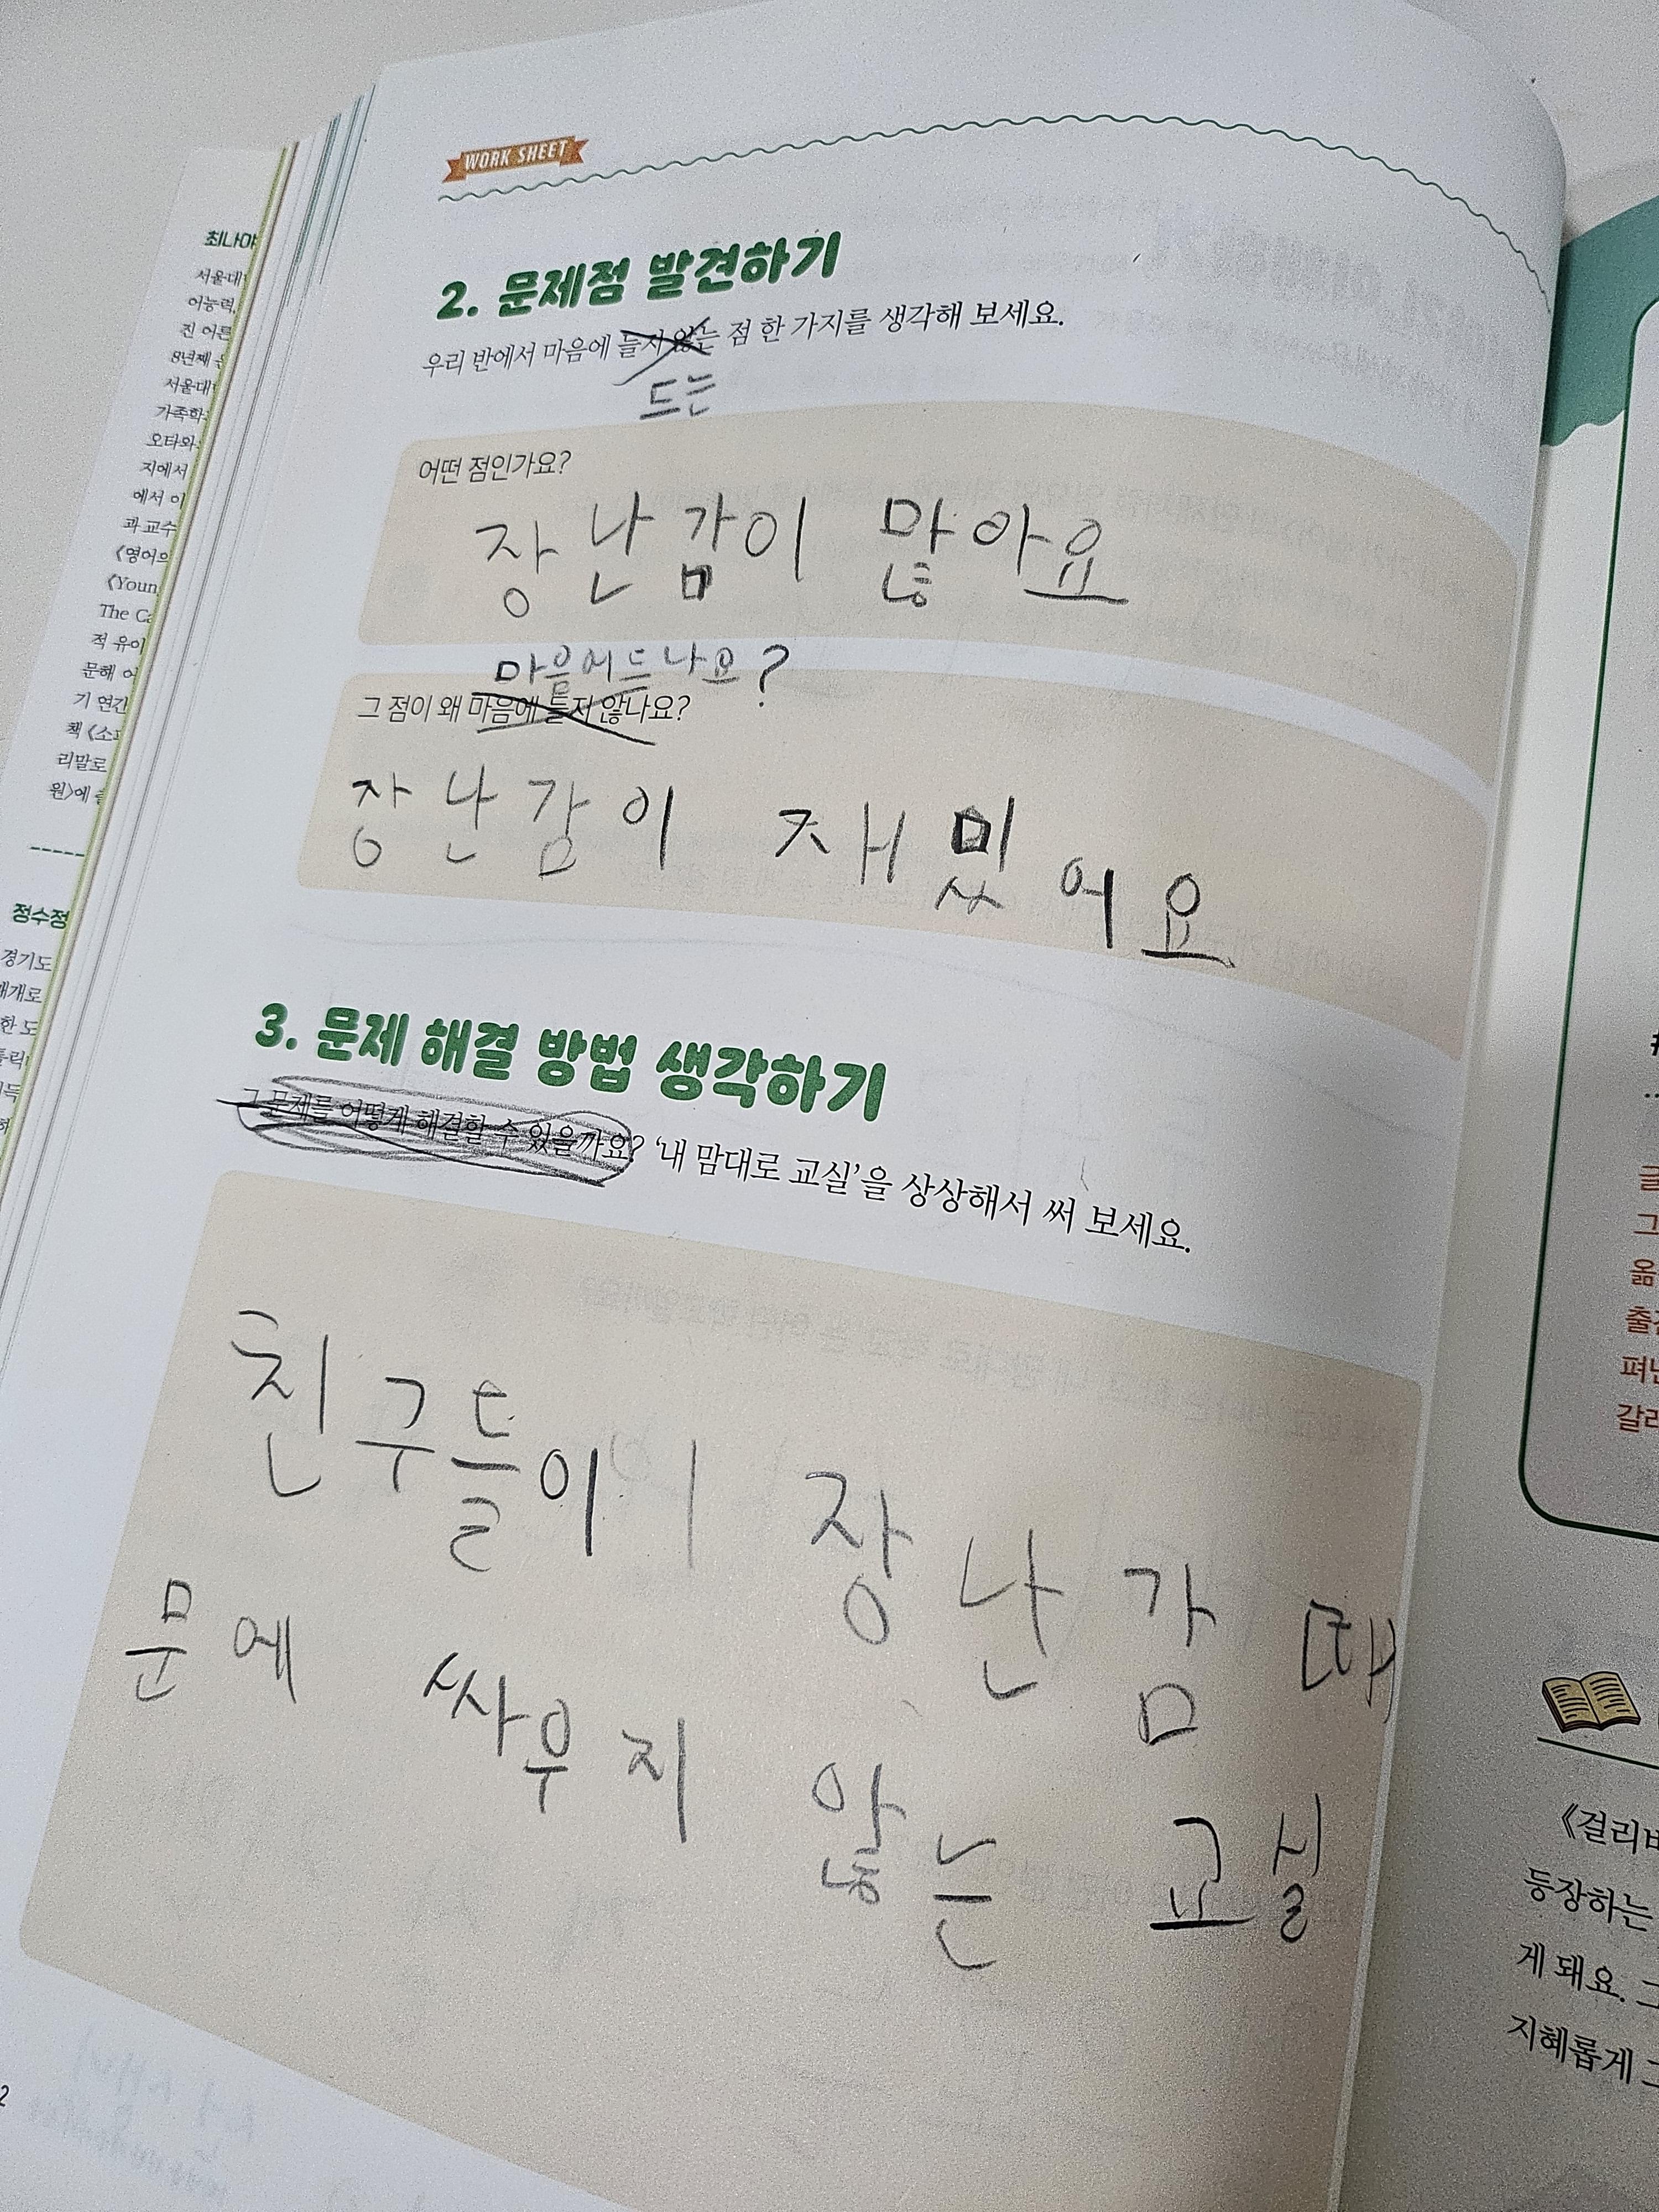 WORK SHEET
2. 문제점 발견하기
우리 반에서 마음에 들지 않는 점 한 가지를 생각해 보세요.
드는
어떤 점인가요?
장난감이 많아요
마음에드나요?
그 점이 왜 마음에 들지 않나요?
장난감이 재밌어요
3. 문제 해결 방법 생각하기
그 문제를 어떻게 해결할 수 있을까요? ‘내 맘대로 교실’을 상상해서 써 보세요.
친구들이 장난감 때
문에 싸우지 않는 교실
최나야
서울대
어능력,
진 어른
8년째
서울대
가족학
오타와
지에서
에서 이
과 교수
《영어의
《Youn
The Ca
적 유아
문해
기 연간
책 《소
리말로
원》에
정수정
경기도
한 도
2
《걸리버
등장하는
게 돼요. 그
지혜롭게 그